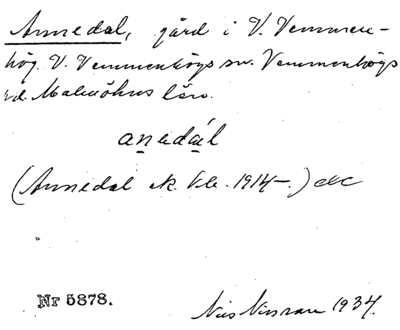 Annedal, gård i V. Vemmen-
hög. V. Vemmenhögs sn. Vemmenhögs
hd. Malmöhus län.
anedál
(Annedal ek. kb. 1914-.)
Nr 5878.
Nils Nilsson 1934.